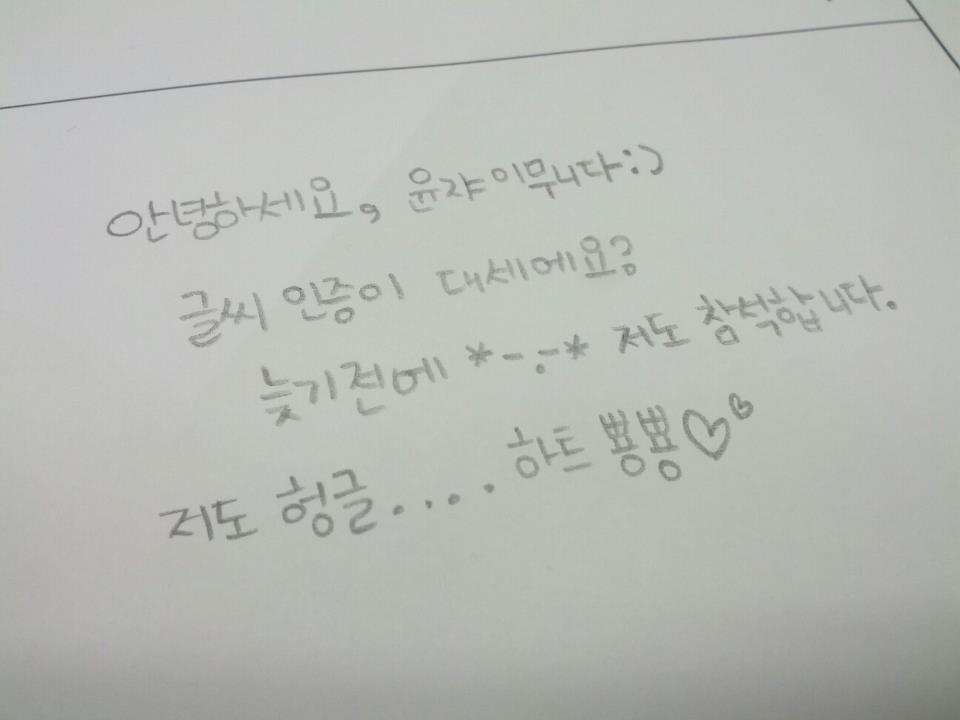 안녕하세요, 윤쟈이무니다:)
글씨 인증이 대세에요?
늦기전에 *-.-* 저도 참석합니다.
저도 헝글.... 하트 뿅뿅♡♡